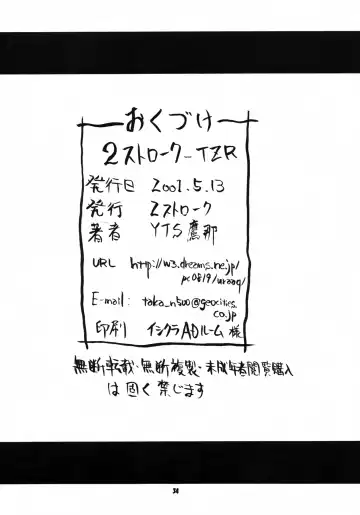 おくづけ
2ストローク-TZR
発行日 2001.5.13
発行 2ストローク
著者 YTS鷹那
URL http://w3.dreams.ne.jp/
pc0819/uraaq/
E-mail: taka_n500@geocities.
co.jp
印刷 イシクラADルーム 様
無断転載・無断複製・未成年者閲覧購入
は固く禁じます
34